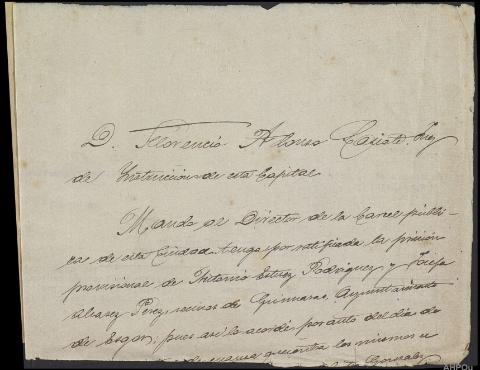 D. Florencio Alonso Lasiote, Juez
de Instruccion de esta Capital.
Mando al Director de la Carcel públi-
ca de esta Ciudad tenga por ratificada la prision
provisional de Antonio Estevez Rodriguez y Josefa
Alvarez Perez, vecinos de Ayuntamiento
de Esgos, pues así lo acordé por auto del día de
los mismos
Gonzalez
AHPOu